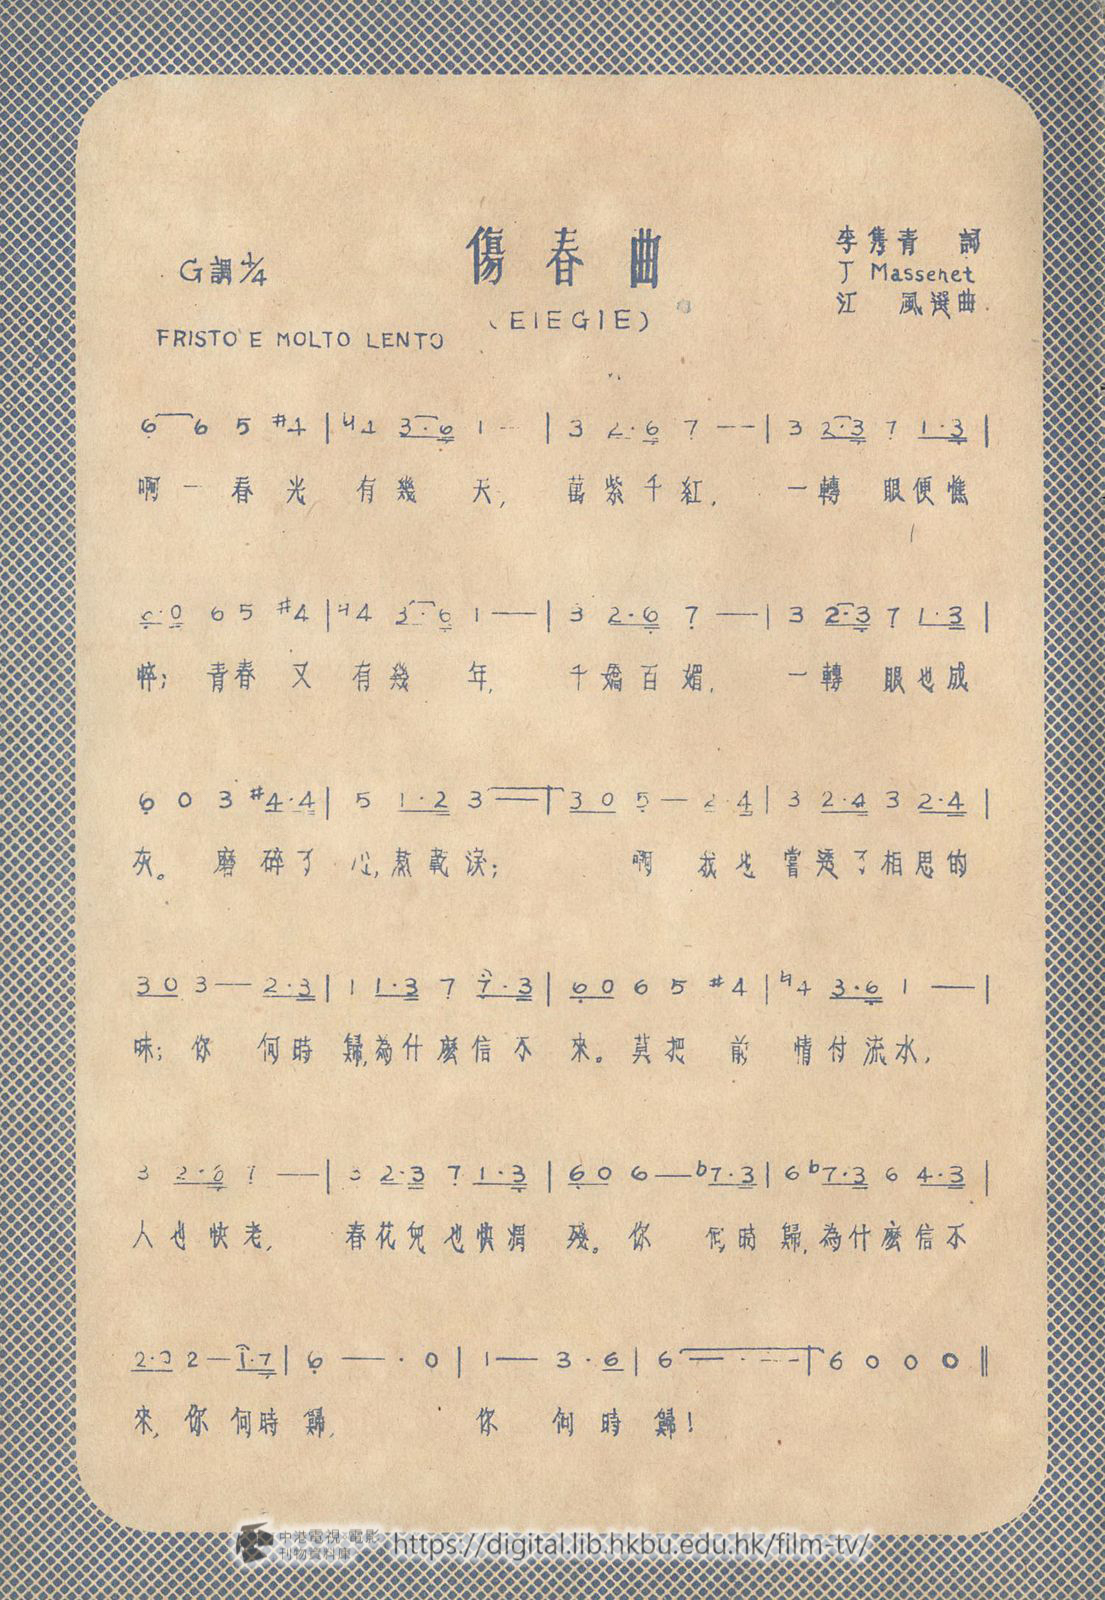 傷春曲
(EIEGIE)
G調 4/4
FRISTO E MOLTO LENTO
李雋青 詞
J Massenet
江 風選曲
6 6 5 #4 | ♮4 3·6 1 - | 3 2·6 7 — — | 3 2·3 7 1·3 |
啊 一 春 光 有 幾 天, 萬 紫 千 紅, 一 轉 眼 便 憔
6·0 6 5 #4 | ♮4 3·6 1 — | 3 2·6 7 — | 3 2·3 7 1·3 |
悴; 青 春 又 有 幾 年, 千 嬌 百 媚, 一 轉 眼 也 成
6 0 3 #4·4 | 5 1·2 3 — | 3 0 5 — 2·4 | 3 2·4 3 2·4 |
灰。 磨 碎 了 心, 熬 乾 淚; 啊 我 也 嘗 透 了 相 思 的
3 0 3 — 2·3 | 1 1·3 7 7·3 | 6 0 6 5 #4 | ♮4 3·6 1 — |
味; 你 何 時 歸, 為 什 麼 信 不 來。 莫 把 前 情 付 流 水,
3 2·6 7 — | 3 2·3 7 1·3 | 6 0 6 — b7·3 | 6 b7·3 6 4·3 |
人 也 快 老, 春 花 兒 也 快 凋 殘。 你 何 時 歸, 為 什 麼 信 不
2·0 2 — 1·7 | 6 — · 0 | 1 — 3 · 6 | 6 — · — | 6 0 0 0 ‖
來, 你 何 時 歸, 你 何 時 歸!
中港電視·電影
刊物資料庫
https://digital.lib.hkbu.edu.hk/film-tv/